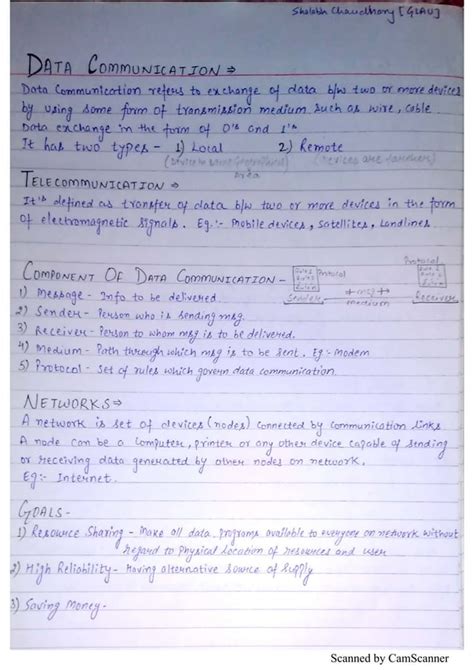 Shalabh Chaudhary [GLAU]
DATA COMMUNICATION ⇒
Data Communication refers to exchange of data b/w two or more devices
by using some form of transmission medium such as wire, cable
Data exchange in the form of 0's and 1's
It has two types - 1) Local 2) Remote
(Devices are farther)
area
TELECOMMUNICATION ⇒
It's defined as transfer of data b/w two or more devices in the form
of electromagnetic signals. Eg.:- Mobile devices, Satellites, Landlines.
COMPONENT OF DATA COMMUNICATION -
Protocol
Protocol
1) Message - Info to be delivered.
Sender msg medium Receiver
2) Sender - Person who is sending msg.
3) Receiver - Person to whom msg is to be delivered.
4) Medium - Path through which msg is to be sent. Eg:- Modem
5) Protocol - Set of rules which govern data communication.
NETWORKS ⇒
A network is set of devices (nodes) connected by communication links
A node can be a computer, printer or any other device capable of sending
or receiving data generated by other nodes on network.
Eg:- Internet.
GOALS -
1) Resource Sharing - Make all data, programs available to everyone on network without
regard to physical location of resources and user
2) High Reliability - Having alternative source of supply
3) Saving Money -
Scanned by CamScanner